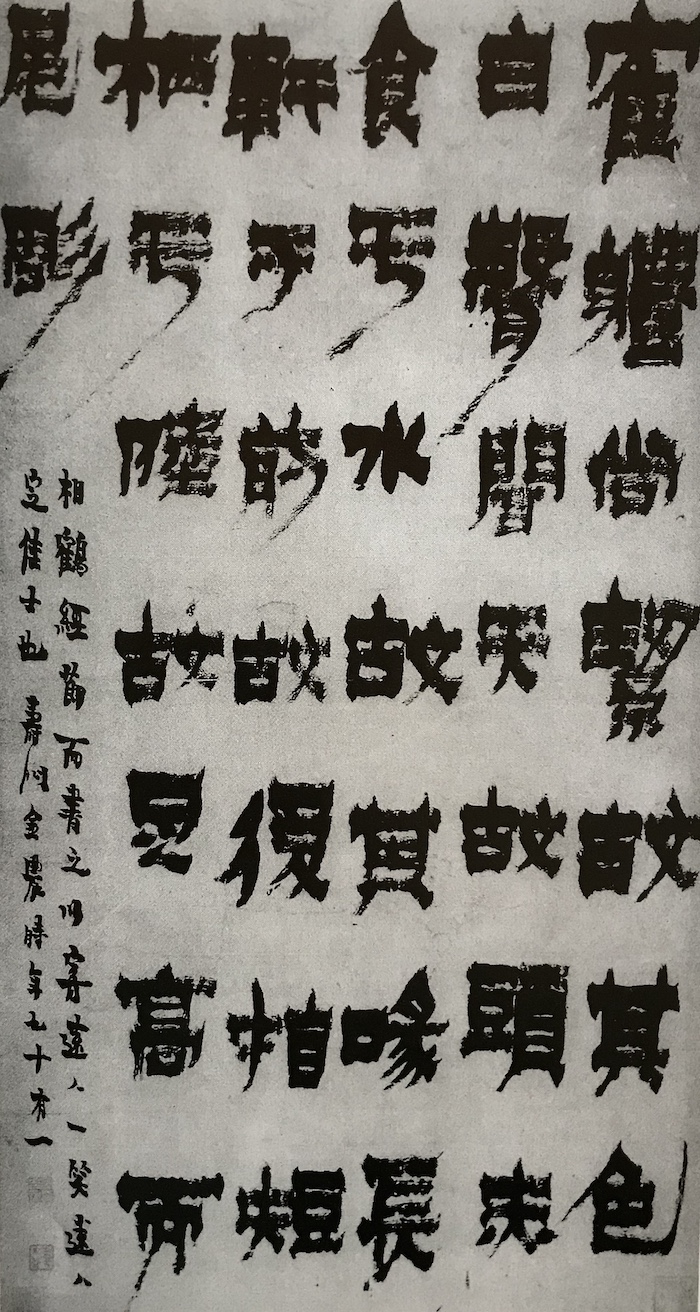 寉軆尚絜故其色
白聲聞天故頭赤
食于水故其喙長
軒于前故後指短
栖于陸故足高而
尾彫
相鶴經節而書之以寄遠人一笑遠人
定佳士也壽門金農時年七十有一